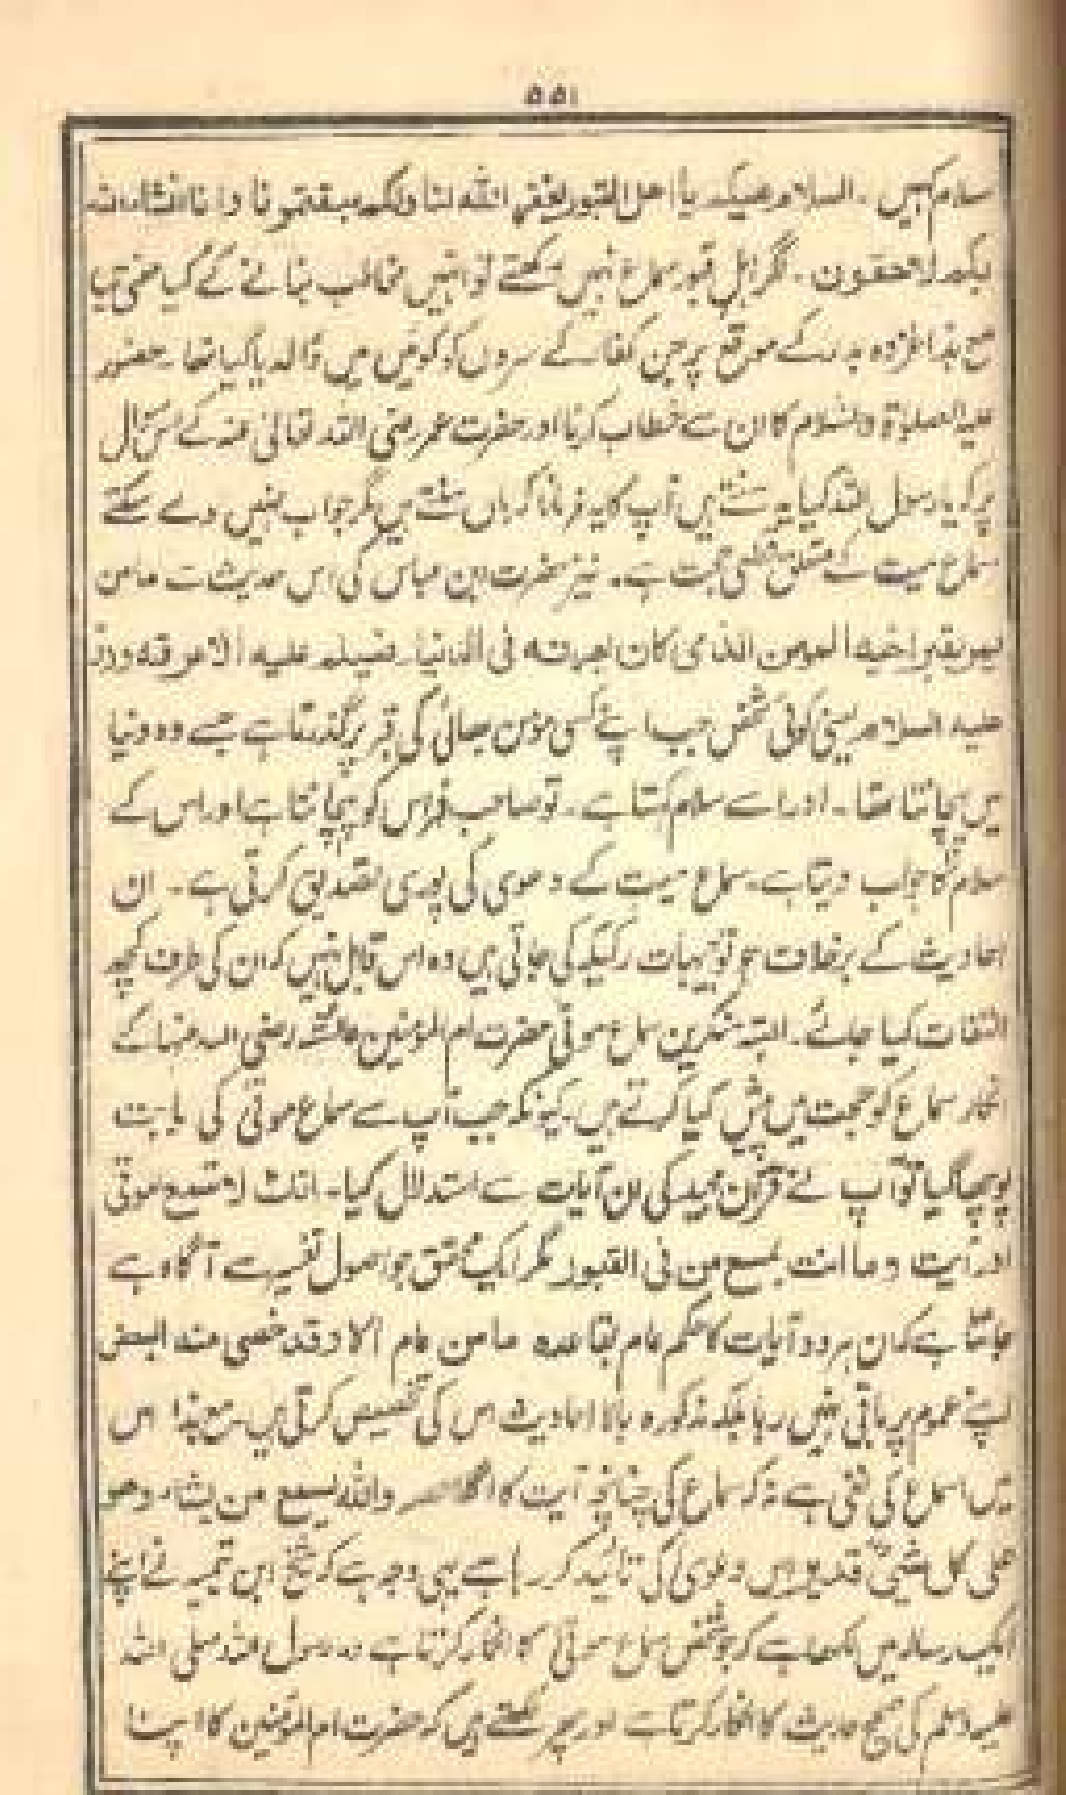 ۵۵۱
سلام کہیں ۔ السلام علیکم یا اھل القبور یغفر اللہ لنا ولکم سبقتمونا وانا انشاء اللہ
بکم لاحقون ۔ گر اہل قبور سماع نہیں رکھتے تو انہیں مخاطب بنانے کے کیا معنی
مع ہذا غزوہ بدر کے موقع پر جن کفار کے سروں کو کوئیں میں ڈالدیا گیا تھا ۔ حضور
علیہ الصلوٰۃ والسلام کا ان سے خطاب کرنا اور حضرت عمر رضی اللہ تعالیٰ عنہ کے سوال
پر کہ یا رسول اللہ کیا یہ سنتے ہیں آپ کا یہ فرمانا کہ ہاں سنتے ہیں مگر جواب نہیں دے سکتے
سماع میت کے متعلق حجت ہے ۔ نیز حضرت ابن عباس کی اس حدیث ما من
یمر بقبر اخیہ المومن الذی کان یعرفہ فی الدنیا فیسلم علیہ الا عرفہ ورد
علیہ السلام یعنی کوئی شخص جب اپنے کسی مومن بھائی کی قبر پر گذرتا ہے جسے وہ دنیا
میں پہچانتا تھا ۔ اور اسے سلام کہتا ہے ۔ تو صاحب قبر اس کو پہچانتا ہے اور اس کے
سلام کا جواب دیتا ہے ۔ سماع میت کے دعوی کی پوری تصدیق کرتی ہے ۔ ان
احادیث کے برخلاف جو توجیہات رکیکہ کی جاتی ہیں وہ اس قابل نہیں کہ ان کی طرف کچھ
التفات کیا جائے ۔ البتہ منکرین سماع موتی حضرت ام المؤمنین عائشہ رضی اللہ عنہا کے
انکار سماع کو حجت میں پیش کیا کرتے ہیں ۔ کیونکہ جب آپ سے سماع موتی کی بابت
پوچھا گیا تو آپ نے قرآن مجید کی ان آیات سے استدلال کیا ۔ انک لا تسمع الموتی
اور آیت وما انت بمسمع من فی القبور مگر ایک محقق جو اصول تفسیر سے آگاہ ہے
جانتا ہے کہ ان ہر دو آیات کا حکم عام بقاعدہ ما من عام الا وقد خصی منہ البعض
اپنے عموم پر باقی نہیں رہا بلکہ مذکورہ بالا احادیث اس کی تخصیص کرتی ہیں ۔ مع ہذا اس
میں اسماع کی نفی ہے نہ کہ سماع کی چنانچہ آیت کا واللہ یسمع من یشاء وھو
علی کل شیئ قدیر اس دعوی کی تائید کر رہا ہے یہی وجہ ہے کہ شیخ ابن تیمیہ نے اپنے
ایک رسالہ میں لکھا ہے کہ جو شخص سماع موتی کا انکار کرتا ہے وہ رسول اللہ صلی اللہ
علیہ وسلم کی صحیح حدیث کا انکار کرتا ہے اور پھر لکھتے ہیں کہ حضرت ام المؤمنین کا اپنا